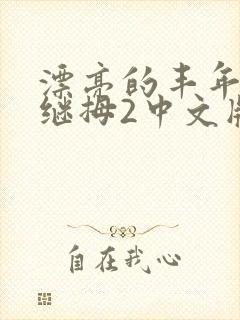 漂亮的丰年
继拇2中文版
自在我心